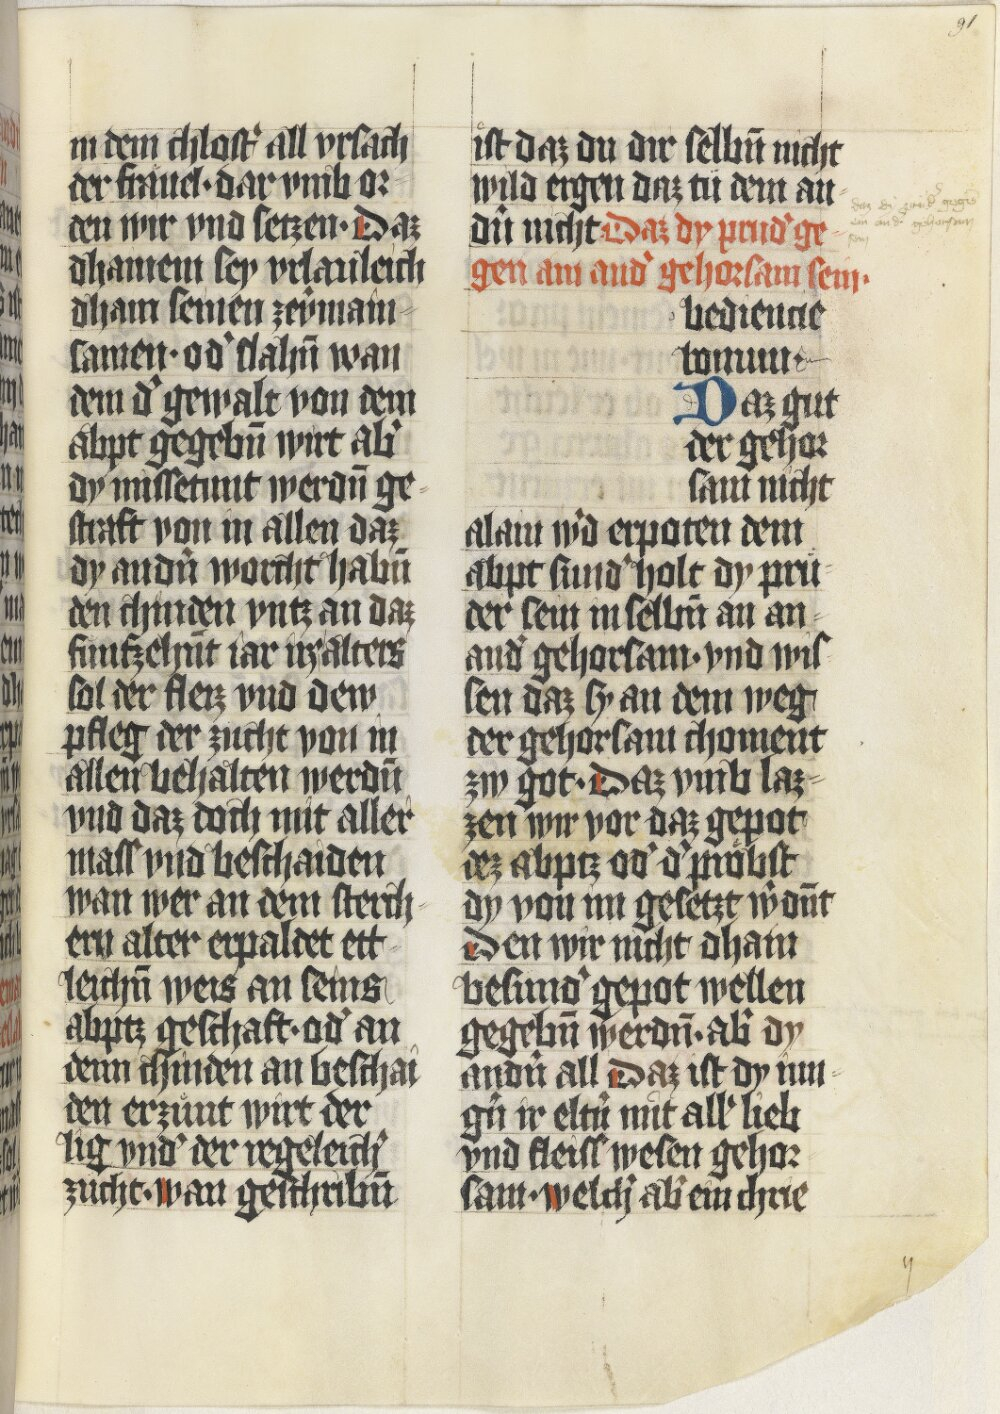 91
in dem chlost᷑ all vrsach
der fräuel · dar vmb or
den wir vnd setzen · Daz
dhainem sey vrlauleich
dham seinen zeymain-
samen · od᷑ slahn̄ wan
dem d᷑ gewalt von dem
abpt gegebn̄ wirt ab᷑
dy missetunt werdn̄ ge-
straft von in allen daz
dy andn᷑ worcht habn̄
den chinden vntz an daz
funfzehn̄t iar irz alters
sol der fleiz vnd dew
pfleg der zucht von in
allen behalten werdn̄
vnd daz doch mit aller
mass vnd beschaiden
wan wer an dem sterch-
ern alter erpaldet ett
leichn̄ weis an seins
abptz geschaft · od᷑ an
denn chinden an beschai
den erzunt wirt der
lig vnd᷑ der regeleich᷑
zucht · wan geschribn̄
ist daz du dir selbn̄ nicht
wild ergen daz tü dem an-
dn᷑ nicht Daz dy prud᷑ ge-
gen ain and᷑ gehorsam sein ·
bediencie
bonum ·
Daz gut
der gehor
sam nicht
alain w᷑d erpoten dem
abpt sund᷑ holt dy prü-
der sein in selbn̄ an an-
and᷑ gehorsam · vnd wis-
sen daz sy an dem weg
der gehorsam choment
zw got · Daz vmb laz-
zen wir vor daz gepot
dez abptz od᷑ d᷑ pröbst
dy von im gesetzt w᷑dn̄t
Den wir nicht dhain
besund᷑ gepot wellen
gegebn̄ werdn̄ · ab᷑ dy
andn᷑ all Daz ist dy iun-
gn᷑ ir eltn᷑ mit all᷑ lieb
vnd fleiss wesen gehor
sam · welch᷑ ab᷑ ein chrie